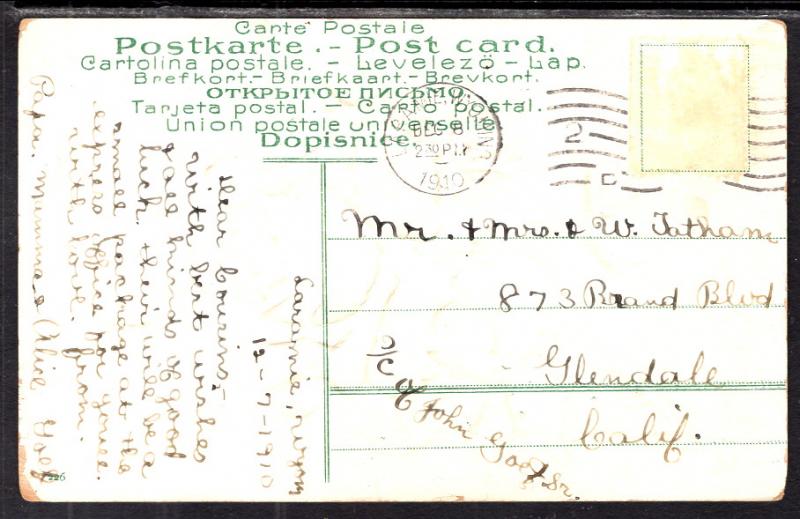 Carte Postale
Postkarte. – Post card.
Cartolina postale. – Levelezö – Lap.
Brefkort. – Briefkaart. – Brevkort.
ОТКРЫТОЕ ПИСЬМО.
Tarjeta postal. – Carto postal.
Union postale universelle
Dopisnice.
DEC 8
2 30 PM
1910
2
Laramie, Wyom
12-7-1910
Dear Cousins:-
with best wishes
& all kinds of good
luck. their will be a
small package at the
express office for you ll.
with love from.
Papa. Mumma & Alice
Mr. & Mrs. & W. Tatham
873 Brand Blvd
Glendale
Calif.
c/o of John Goof Sr.
226